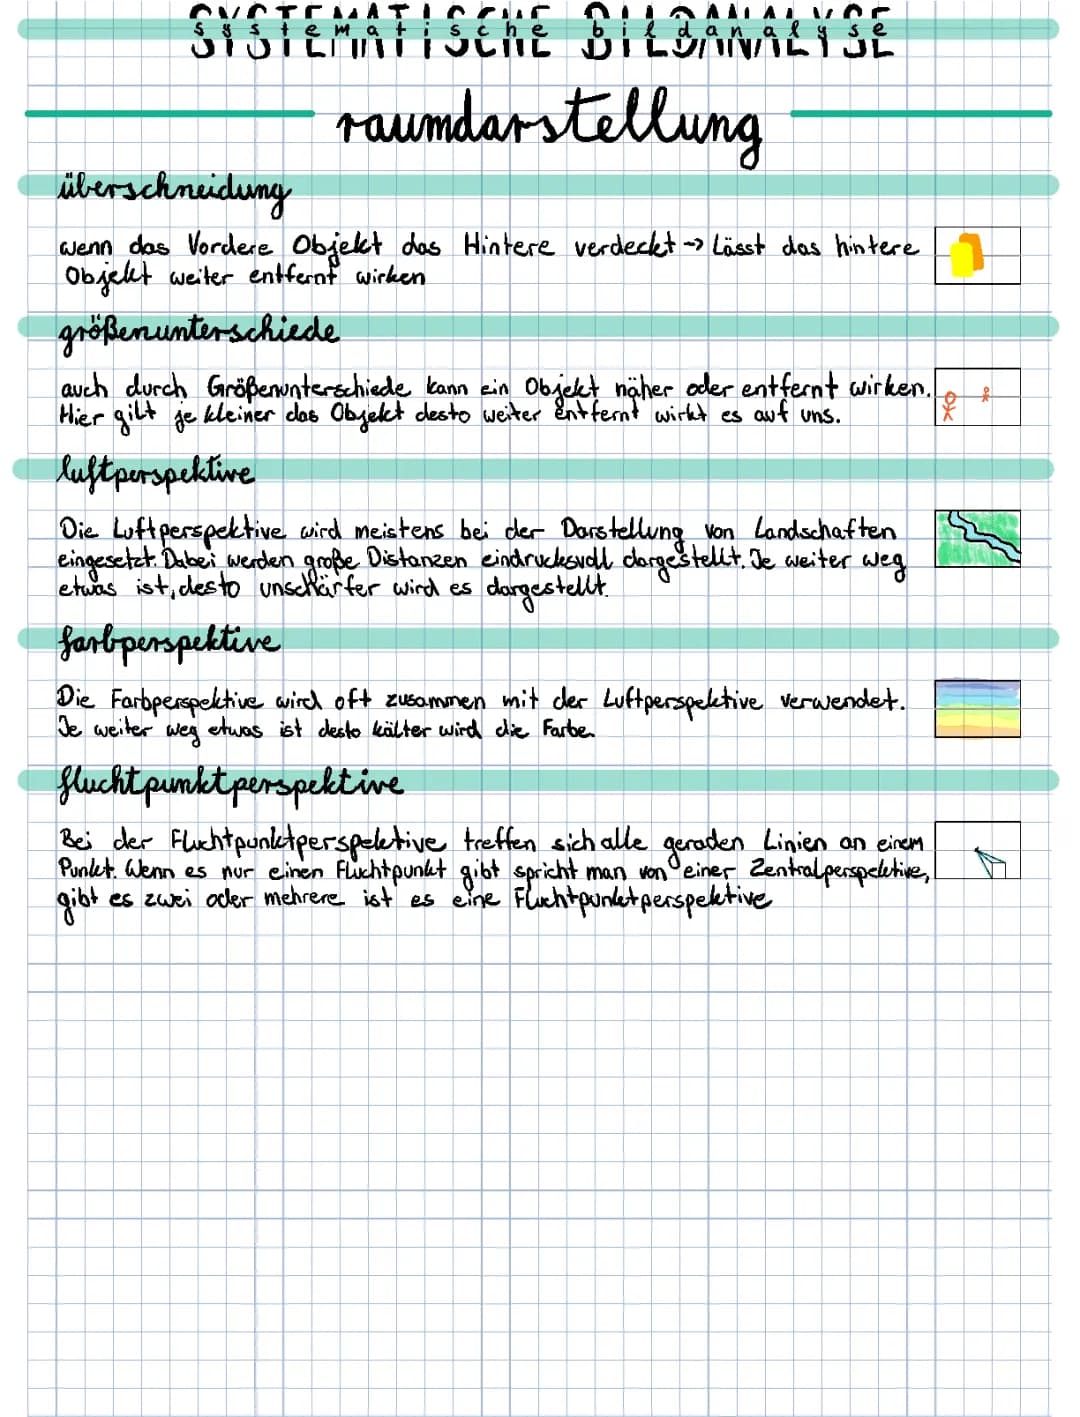 SYSTEMATISCHE BILDANALYSE
systematische bildanalyse
raumdarstellung
überschneidung
wenn das Vordere Objekt das Hintere verdeckt → Lässt das hintere
Objekt weiter entfernt wirken
größenunterschiede
auch durch Größenunterschiede kann ein Objekt näher oder entfernt wirken.
Hier gilt je kleiner das Objekt desto weiter entfernt wirkt es auf uns.
luftperspektive
Die Luftperspektive wird meistens bei der Darstellung von Landschaften
eingesetzt. Dabei werden große Distanzen eindrucksvoll dargestellt. Je weiter weg
etwas ist, desto unschärfer wird es dargestellt.
farbperspektive
Die Farbperspektive wird oft zusammen mit der Luftperspektive verwendet.
Je weiter weg etwas ist desto kälter wird die Farbe.
fluchtpunktperspektive
Bei der Fluchtpunktperspektive treffen sich alle geraden Linien an einem
Punkt. Wenn es nur einen Fluchtpunkt gibt spricht man von einer Zentralperspektive,
gibt es zwei oder mehrere ist es eine Fluchtpunktperspektive